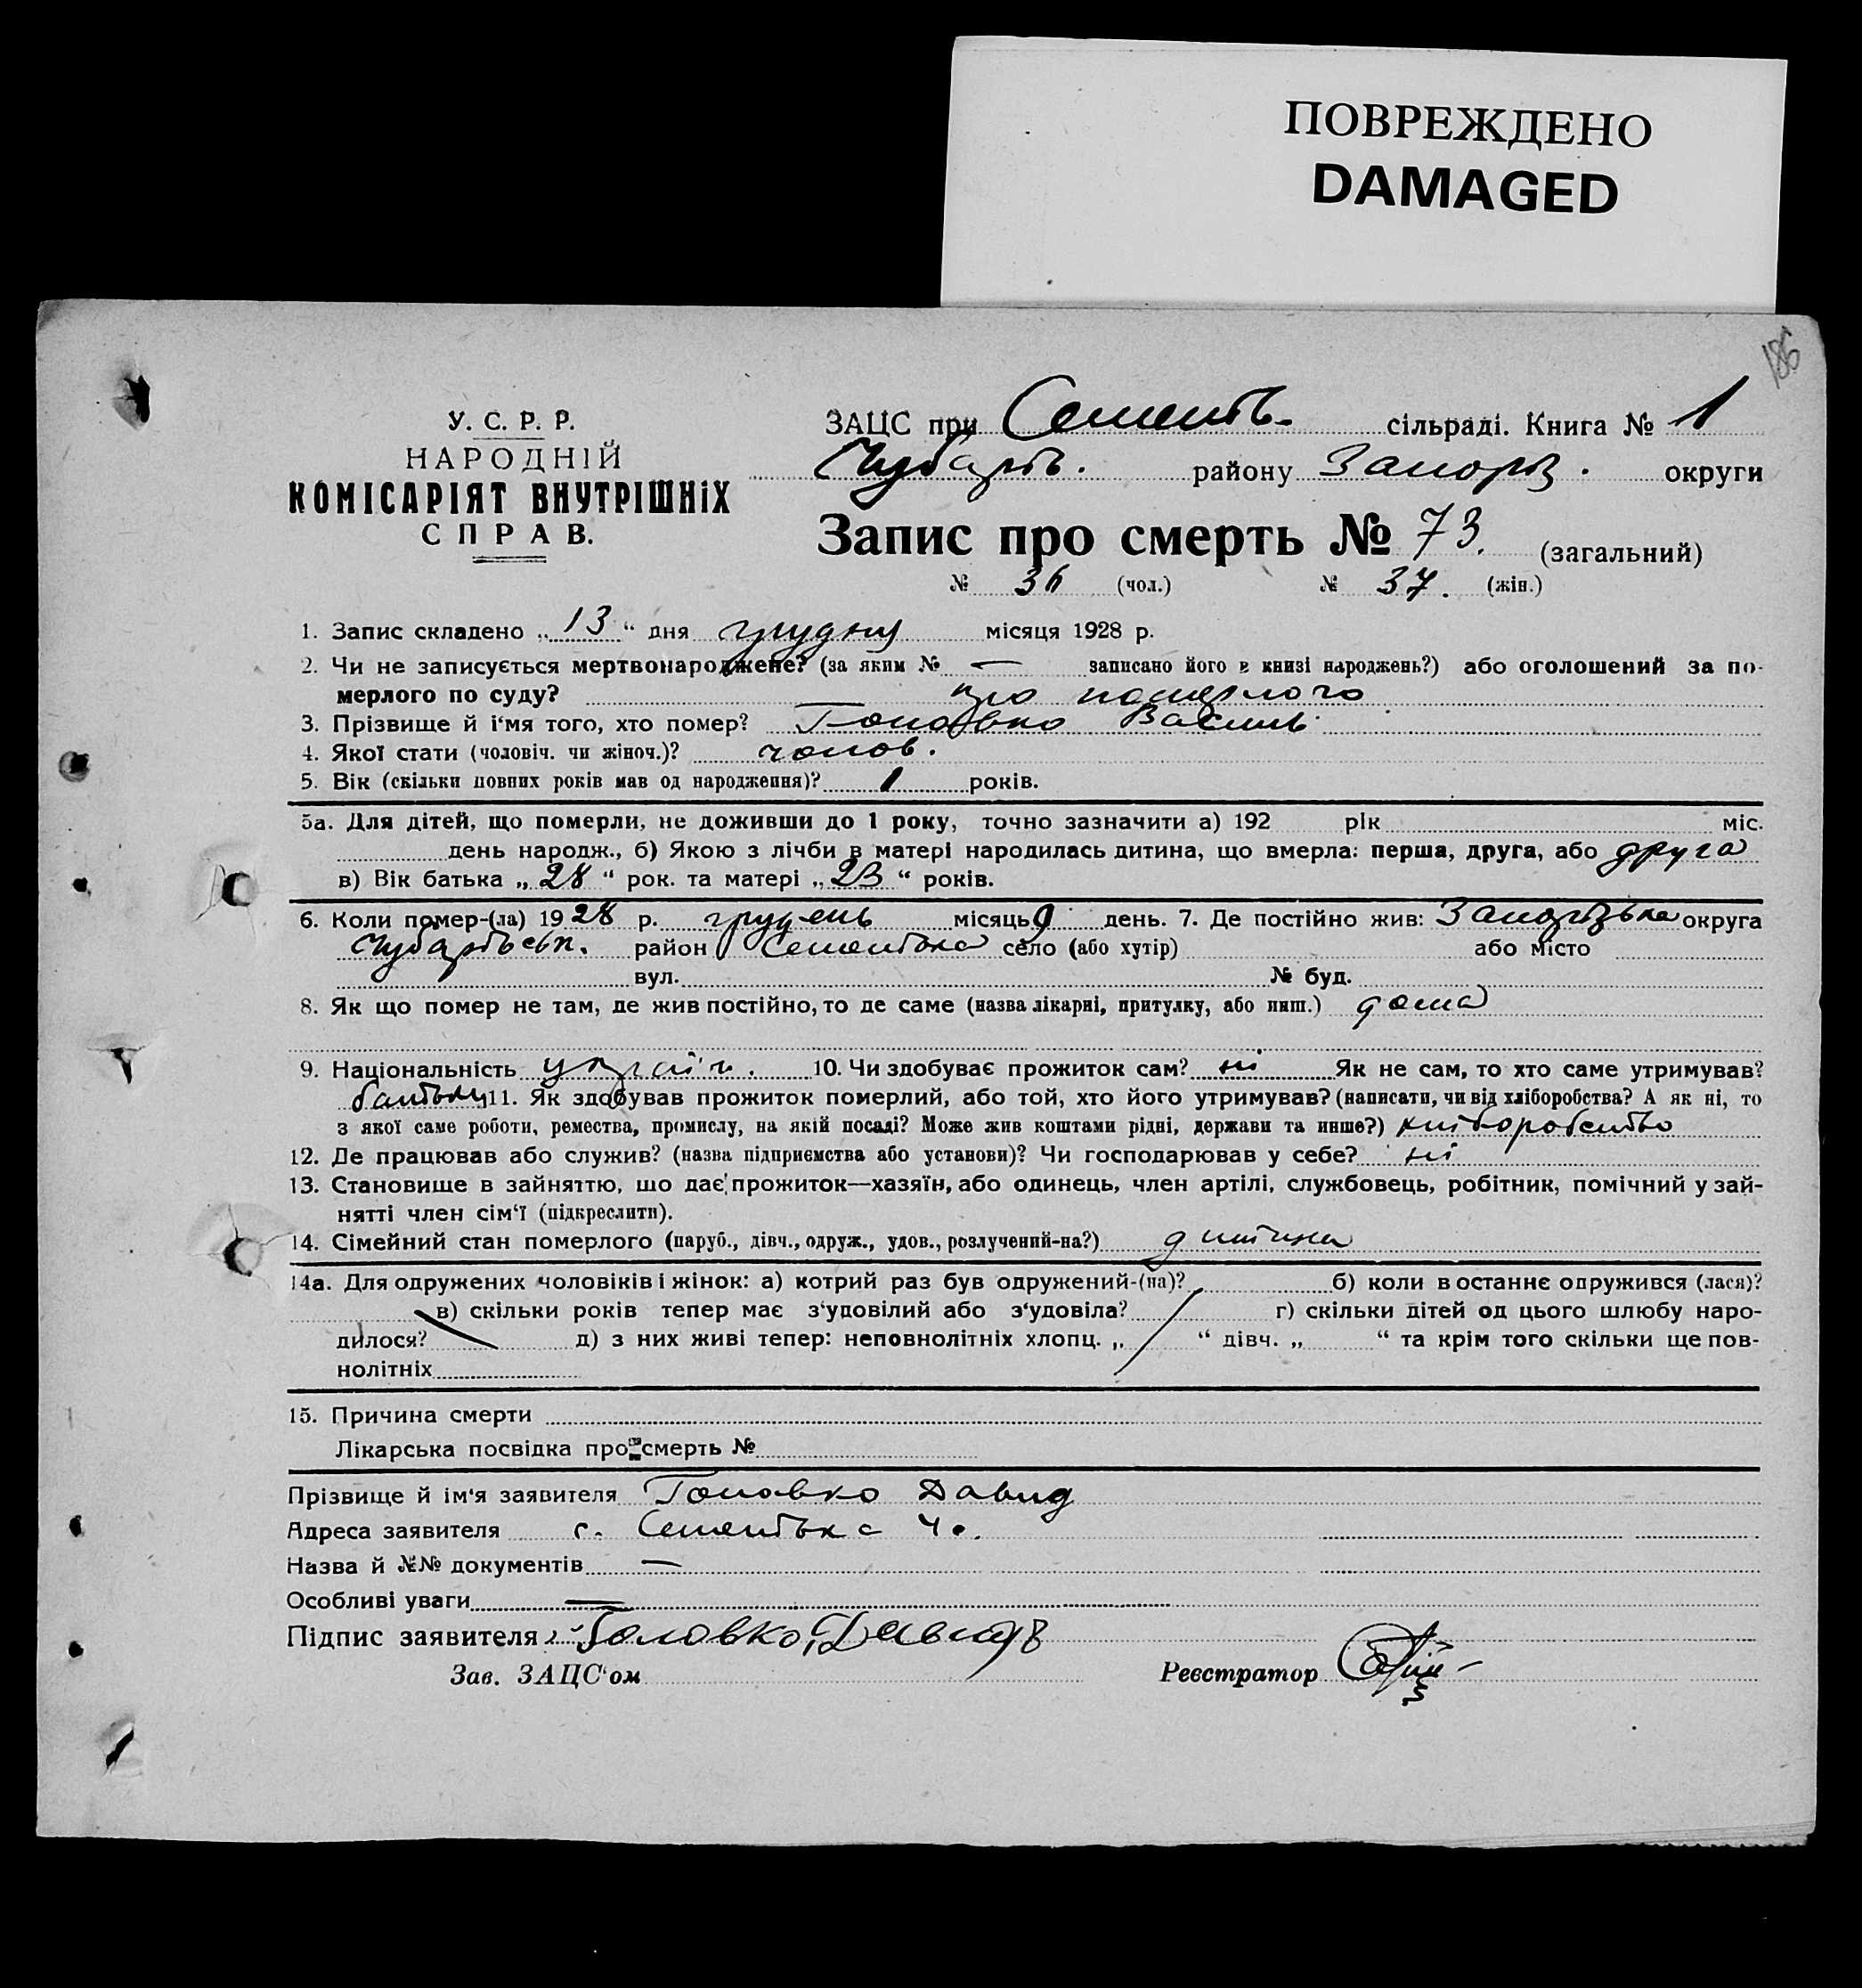 ПОВРЕЖДЕНО
DAMAGED
186
У. С. Р. Р.
НАРОДНІЙ
КОМІСАРІЯТ ВНУТРІШНІХ
СПРАВ.
ЗАЦС при Сементв. сільраді. Книга № 1
Чубарів. району Запоріз. округи
Запис про смерть № 73. (загальний)
№ 36 (чол.) № 37. (жін.)
1. Запис складено „13“ дня грудня місяця 1928 р.
2. Чи не записується мертвонароджене? (за яким № — записано його в книзі народжень?) або оголошений за по-
мерлого по суду? про померлого
3. Прізвище й і'мя того, хто помер? Головко Василь
4. Якої стати (чоловіч. чи жіноч.)? чолов.
5. Вік (скільки повних років мав од народження)? 1 років.
5а. Для дітей, що померли, не доживши до 1 року, точно зазначити а) 192 рік міс.
день народж., б) Якою з лічби в матері народилась дитина, що вмерла: перша, друга, або друга
в) Вік батька „28“ рок. та матері „23“ років.
6. Коли помер-(ла) 1928 р. грудень місяць 9 день. 7. Де постійно жив: Запорізька округа
Чубарівськ. район село (або хутір) або місто
вул. № буд.
8. Як що помер не там, де жив постійно, то де саме (назва лікарні, притулку, або инш.) дома
9. Національність україн. 10. Чи здобуває прожиток сам? ні Як не сам, то хто саме утримував?
батьки 11. Як здобував прожиток померлий, або той, хто його утримував? (написати, чи від хліборобства? А як ні, то
з якої саме роботи, ремества, промислу, на якій посаді? Може жив коштами рідні, держави та инше?) хліборобство
12. Де працював або служив? (назва підприємства або установи)? Чи господарював у себе? ні
13. Становище в зайняттю, що дає прожиток—хазяїн, або одинець, член артілі, службовець, робітник, помічний у зай-
нятті член сім'ї (підкреслити).
14. Сімейний стан померлого (паруб., дівч., одруж., удов., розлучений-на?) дитина
14а. Для одружених чоловіків і жінок: а) котрий раз був одружений-(на)? б) коли востаннє одружився (лася)?
в) скільки років тепер має з'удовілий або з'удовіла? г) скільки дітей од цього шлюбу наро-
дилося? д) з них живі тепер: неповнолітніх хлопц. „ “ дівч. „ “ та крім того скільки ще пов-
нолітніх
15. Причина смерти
Лікарська посвідка про смерть №
Прізвище й ім'я заявителя Головко Давид
Адреса заявителя с.
Назва й №№ документів —
Особливі уваги —
Підпис заявителя Головко Давидъ
Зав. ЗАЦС'ом Реєстратор